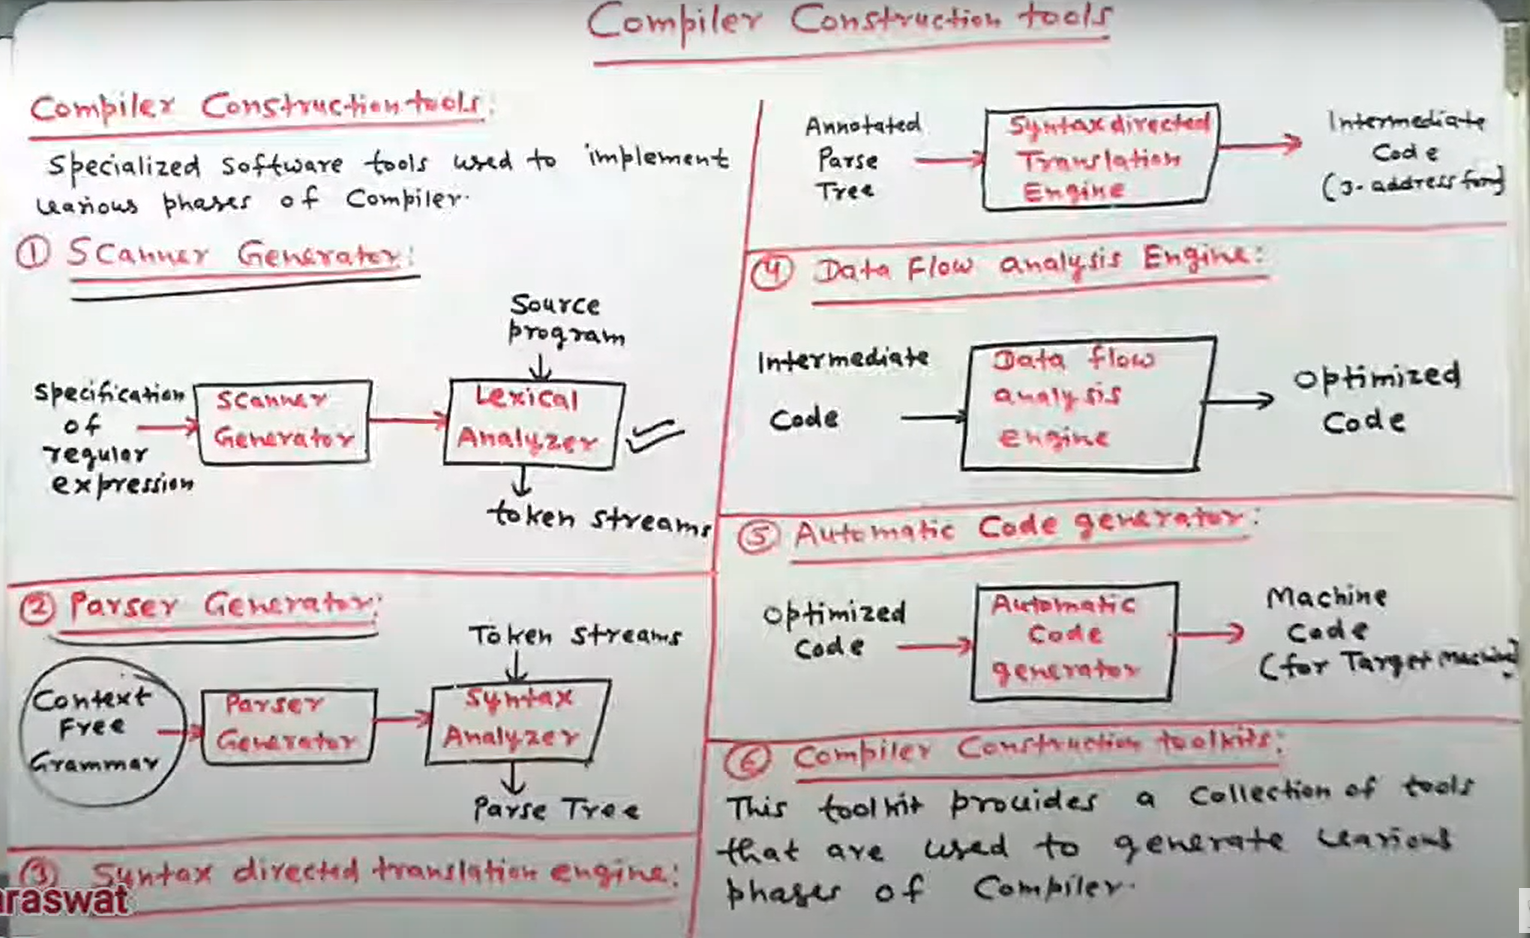 Compiler Construction tools
Compiler Construction tools:
Specialized software tools used to implement
various phases of Compiler.
① Scanner Generator:
Source
program
Specification
of
regular
expression
Scanner
Generator
Lexical
Analyzer
token streams
② Parser Generator:
Token streams
Context
Free
Grammar
Parser
Generator
Syntax
Analyzer
Parse Tree
③ Syntax directed translation engine:
araswat
Annotated
Parse
Tree
Syntax directed
Translation
Engine
Intermediate
Code
(3-address form)
④ Data Flow analysis Engine:
Intermediate
Code
Data flow
analysis
engine
Optimized
Code
⑤ Automatic Code generator:
Optimized
Code
Automatic
Code
generator
Machine
Code
(for Target Machine)
⑥ Compiler Construction toolkits:
This toolkit provides a collection of tools
that are used to generate various
phases of Compiler.